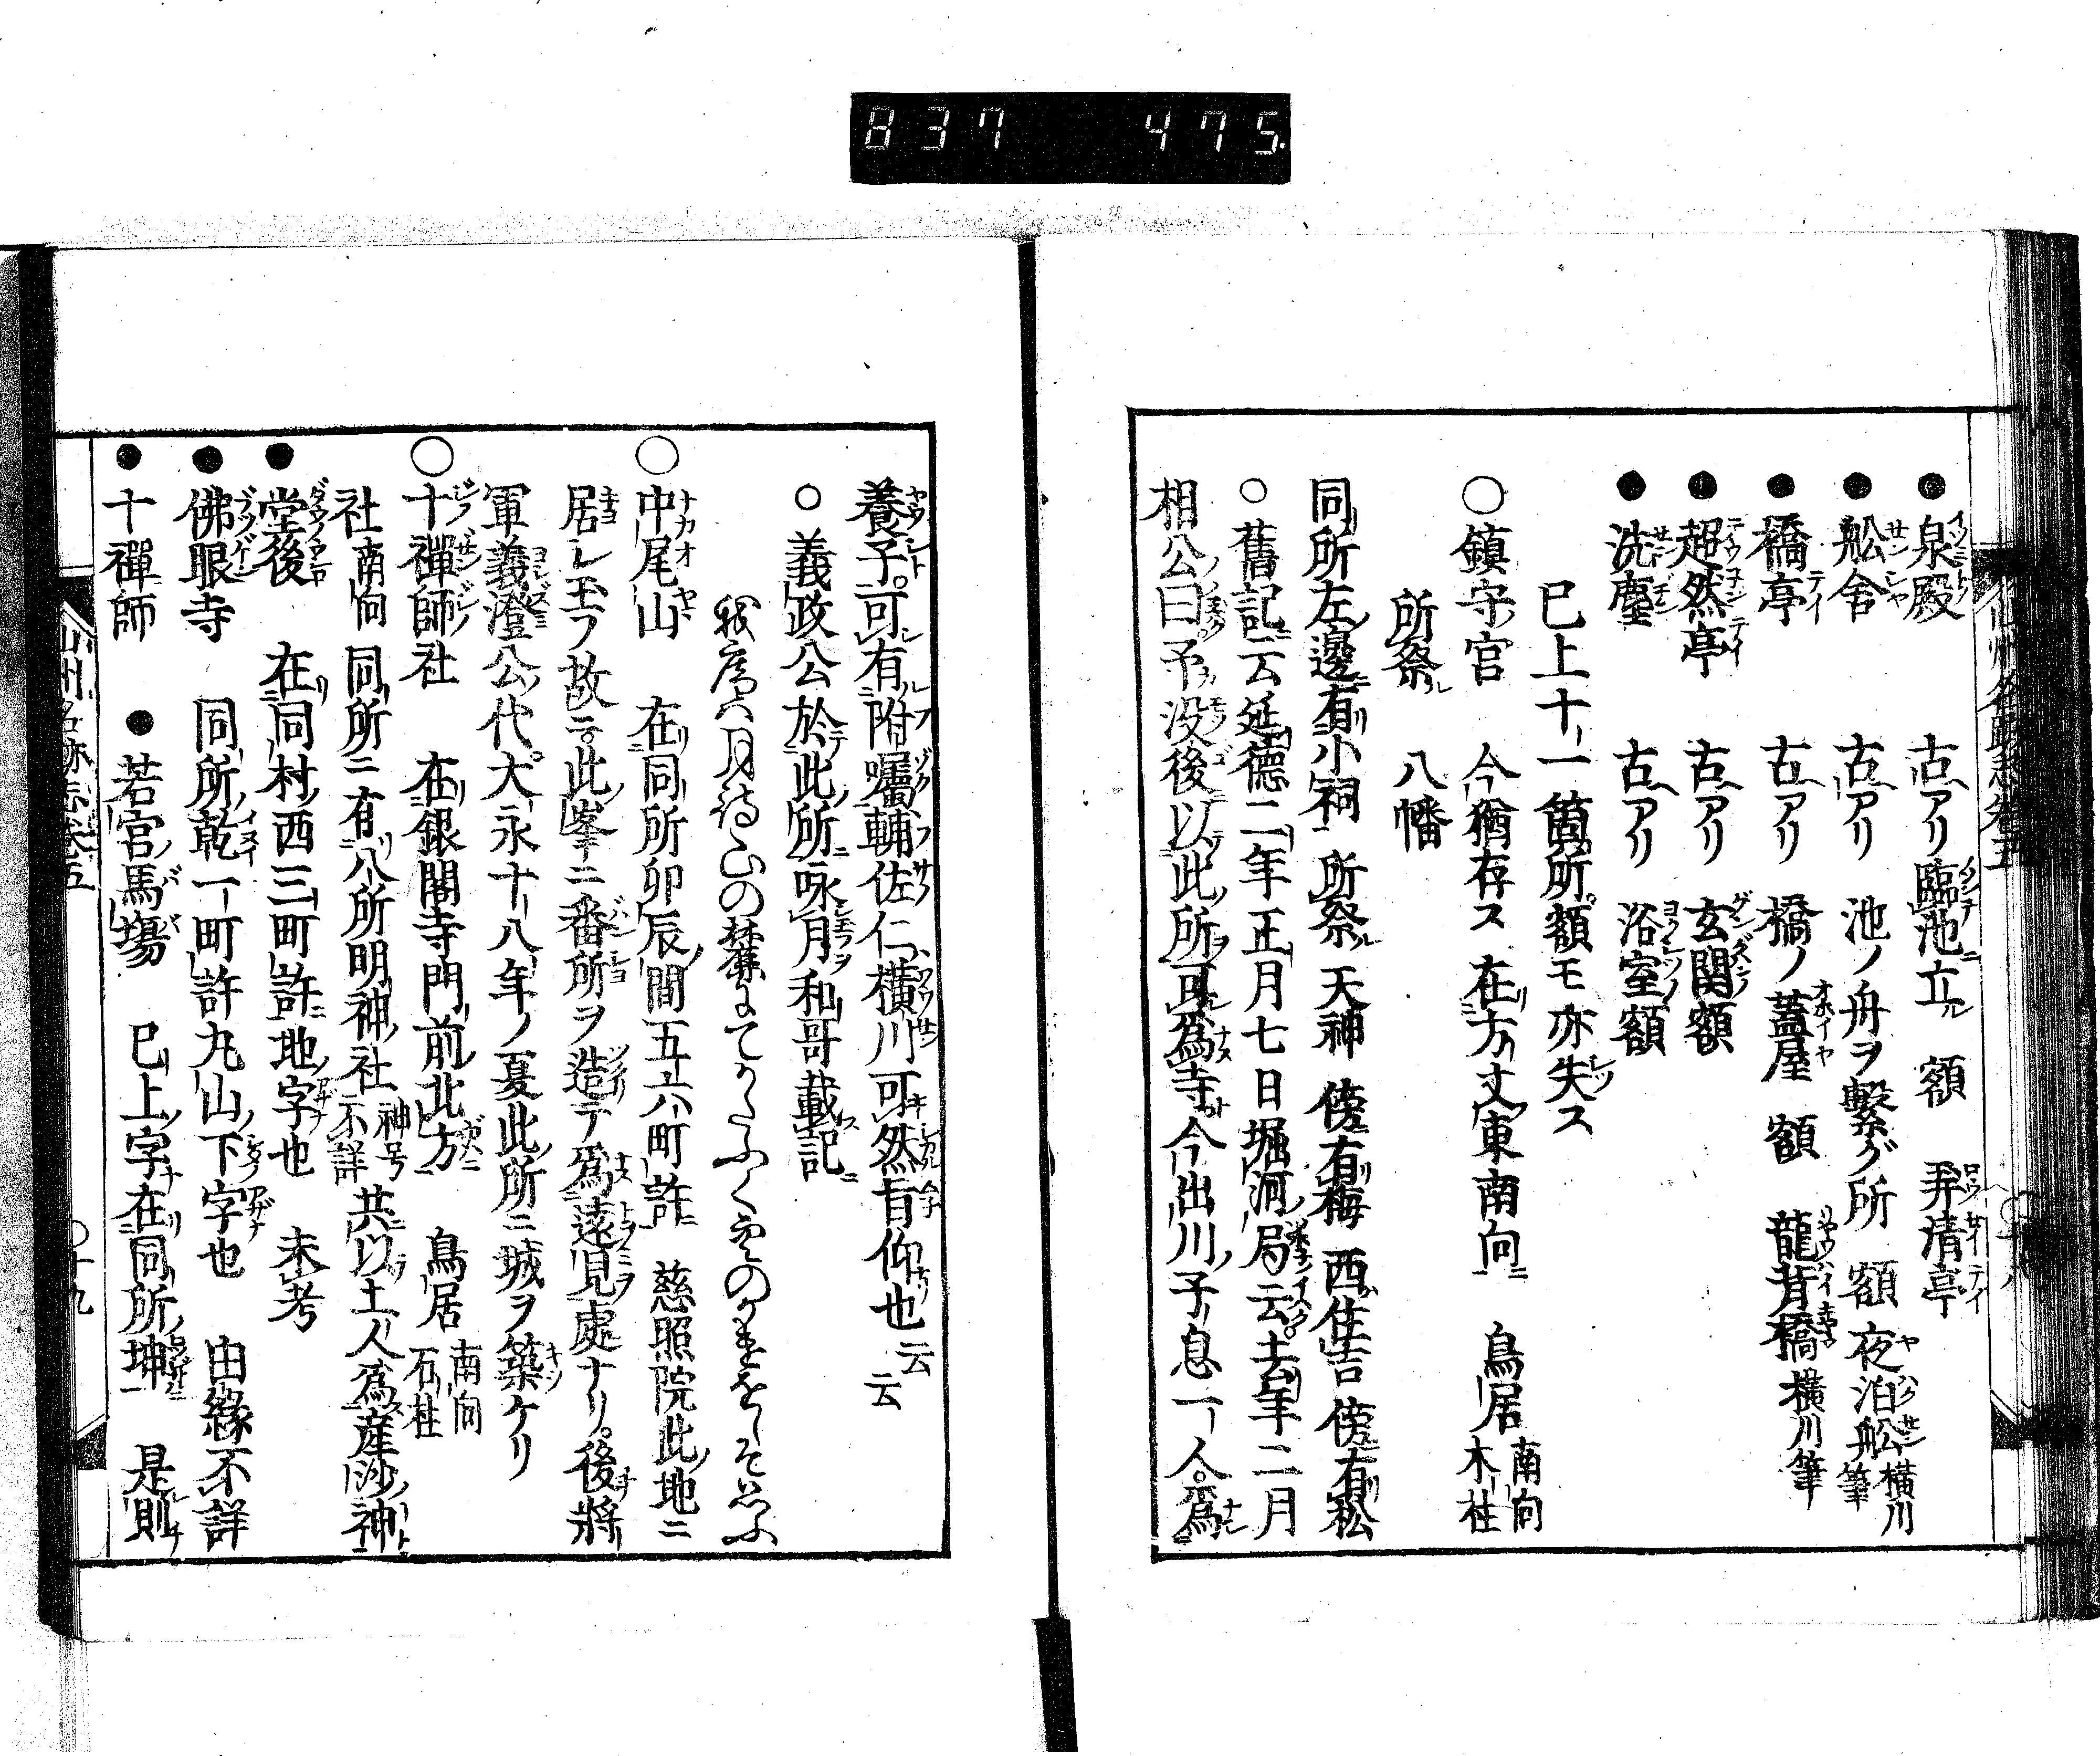 837 475
●泉殿 古ヘアリ臨池ニ立ル 額 弄清亭
●舩舎 古ヘアリ 池ノ舟ヲ繋グ所 額 夜泊舩 横川筆
●橋亭 古ヘアリ 橋ノ蓋屋 額 龍背橋 横川筆
●超然亭 古ヘアリ 玄関ノ額
●洗塵 古ヘアリ 浴室ノ額
已上十一箇所額モ亦失ス
○鎮守ノ宮 今猶存ス 在方丈東南向 鳥居 南向 木柱
所祭 八幡
同所左邊有小祠 所祭ル 天神 傍有梅 西住吉 傍有松
○舊記ニ云延德二年正月七日堀河ノ局云去年二月
相公曰予没後以此所可為寺今出川ノ子息一人為
養子可有附囑輔佐仁横川可然旨仰也云云
○義政公於此所咏月和哥載記ニ
我庵ハ月待山の麓にてかたふく空のかけをしそ思ふ
○中尾山 在同所卯辰ノ間五六町許 慈照院此ノ地ニ
居レ玉フ故ニ此峯ニ番所ヲ造テ為遠見處ナリ後將
軍義澄公ノ代大永十八年ノ夏此所ニ城ヲ築ケリ
○十禪師ノ社 在銀閣寺門前北ノ方 鳥居 南向 石柱
社南向 同所ニ有八所明神ノ社 神号不詳 共以土人為産沙神
●堂後 在同村西三町許ニ地ノ字也 未考
●佛眼寺 同所ノ乾一町許丸山ノ下字也 由縁不詳
●十禪師 ●若宮ノ馬塲 已上ノ字在同所坤 是則
山州名跡志巻五
〇十九